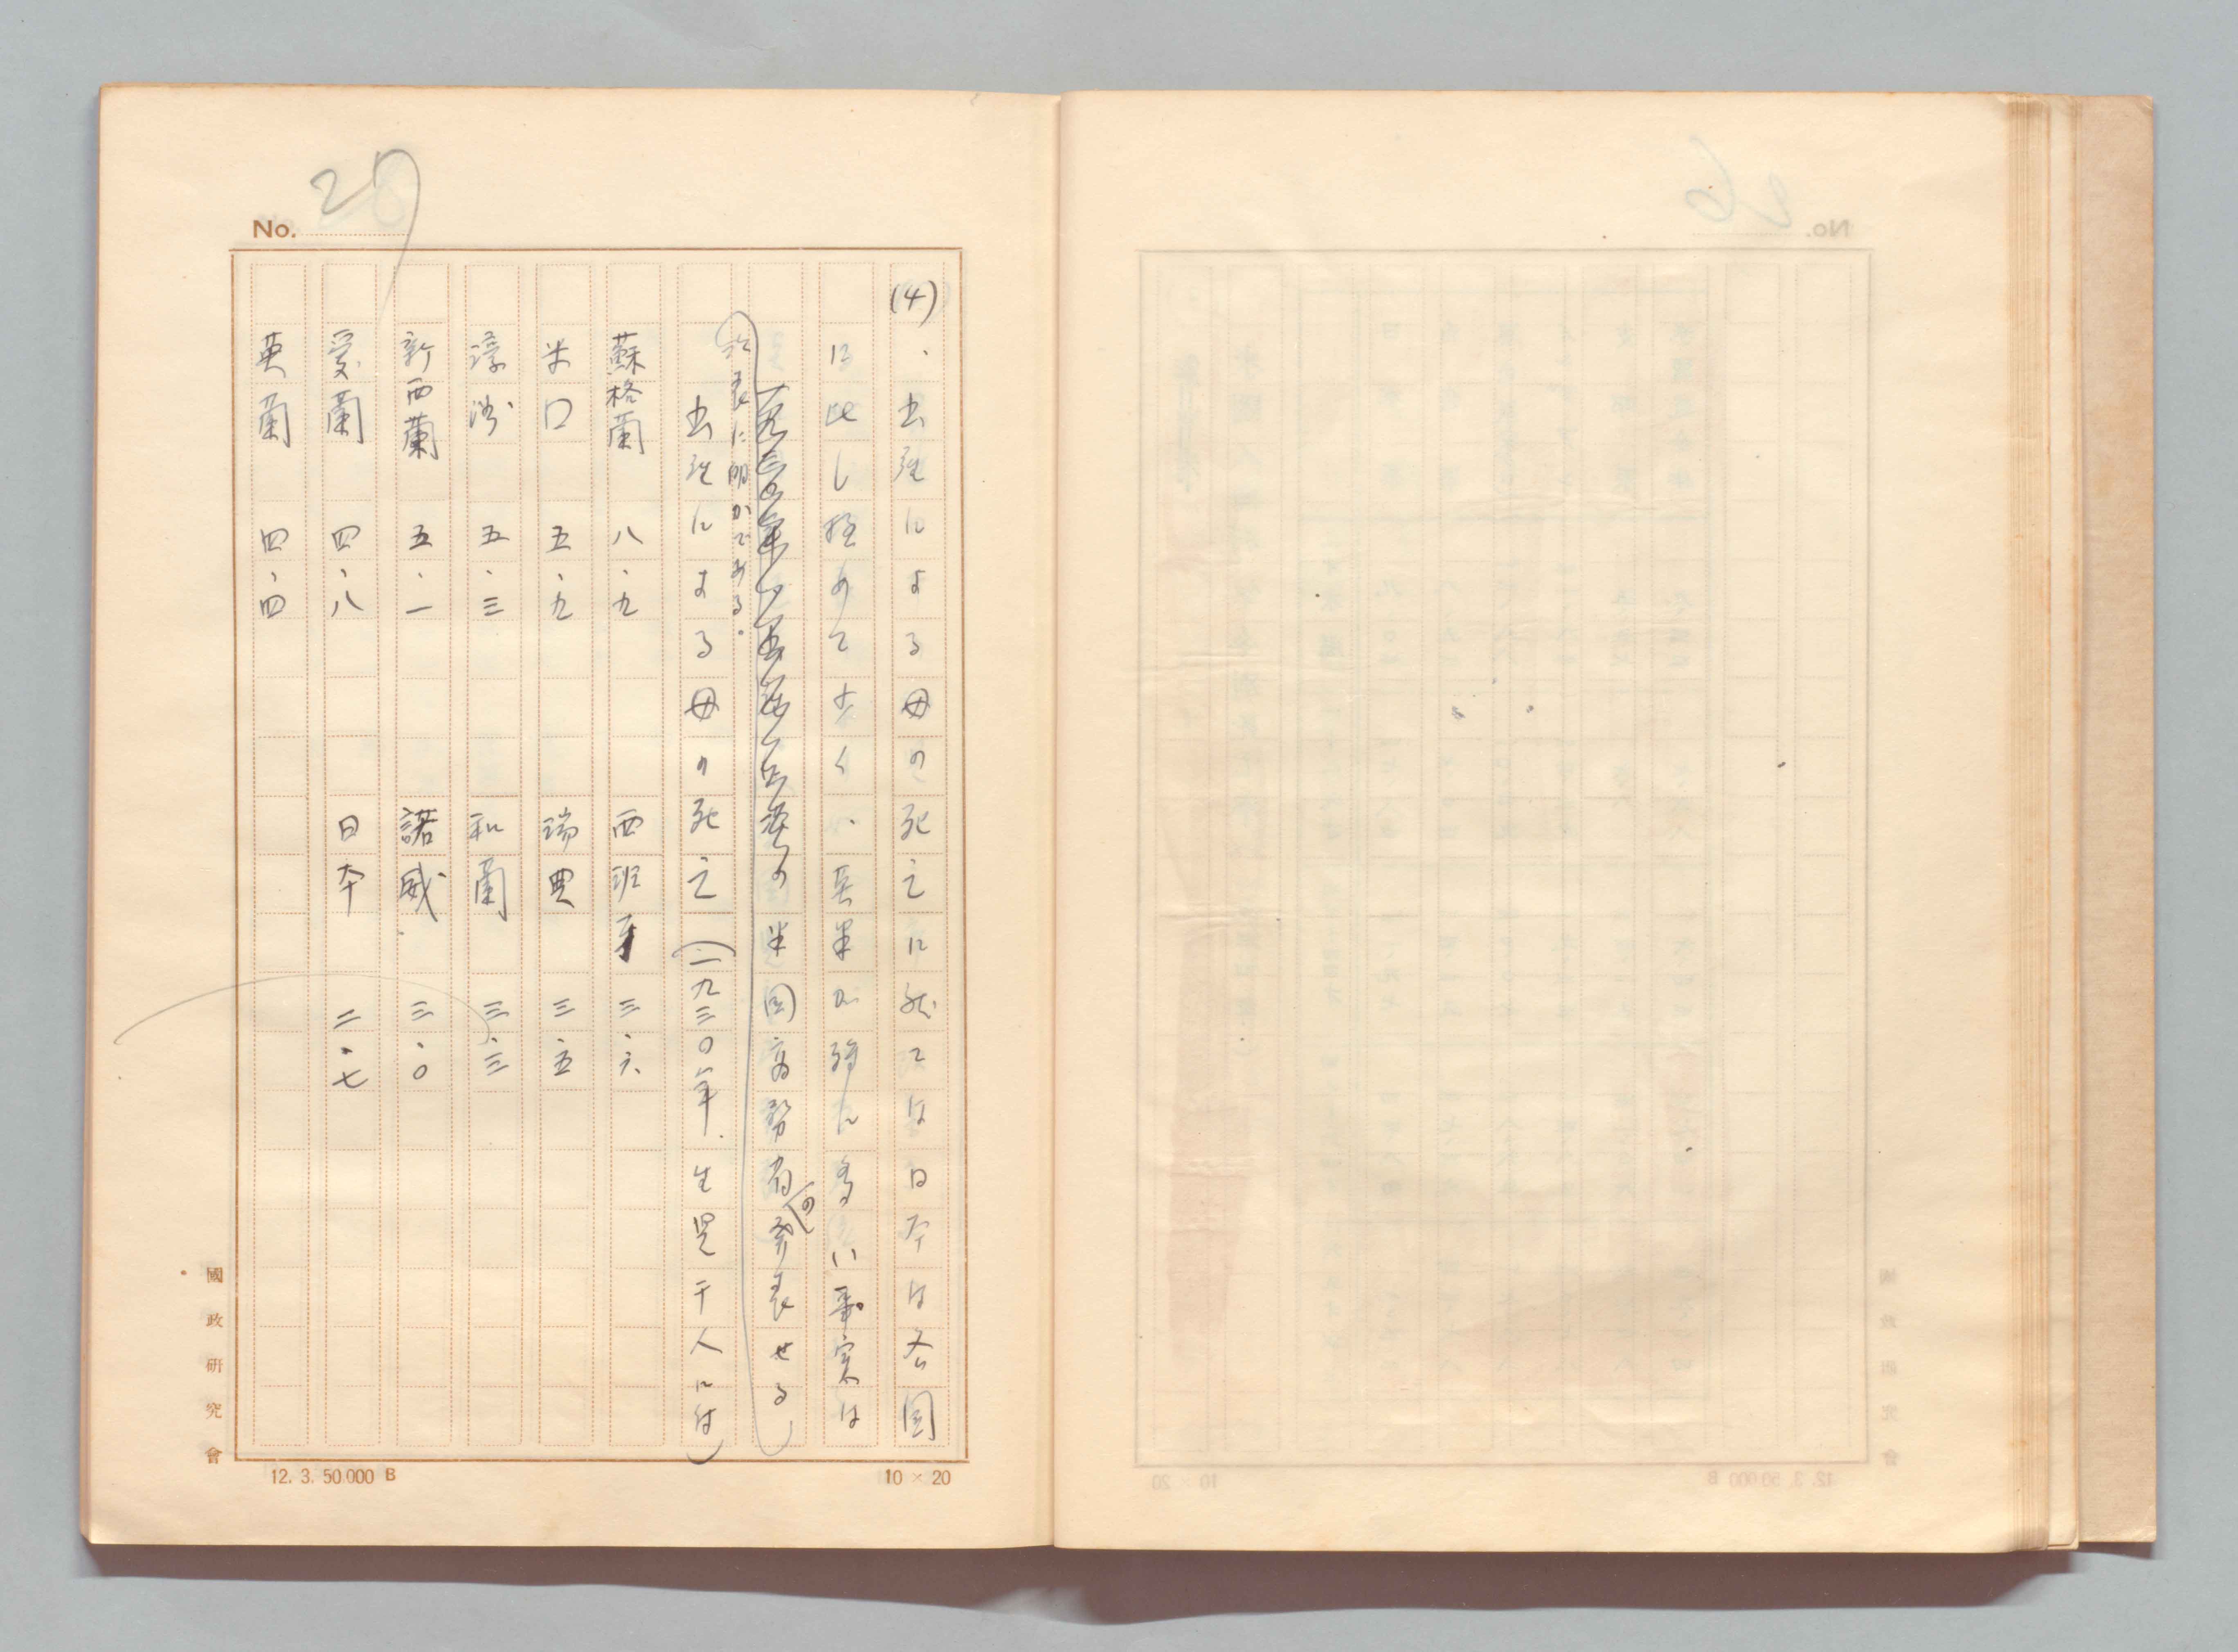 27
No.
(4)、出産による母の死亡に就ては日本は各国
に比し極めて少く、英米が特に多い事実は
米国商務省の発表せる
次表に明かである。
出産による母の死亡(一九三〇年.生児千人に付)
蘇格蘭 八、九 西班牙 三、六
米口 五、九 瑞典 三、五
濠洲 五、三 和蘭 三、三
新西蘭 五、一 諾威 三、〇
愛蘭 四、八 日本 二、七
英蘭 四、四
國政研究會
12. 3. 50.000 B
10 × 20